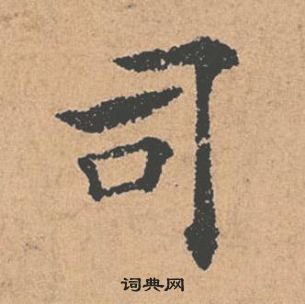 司
词典网